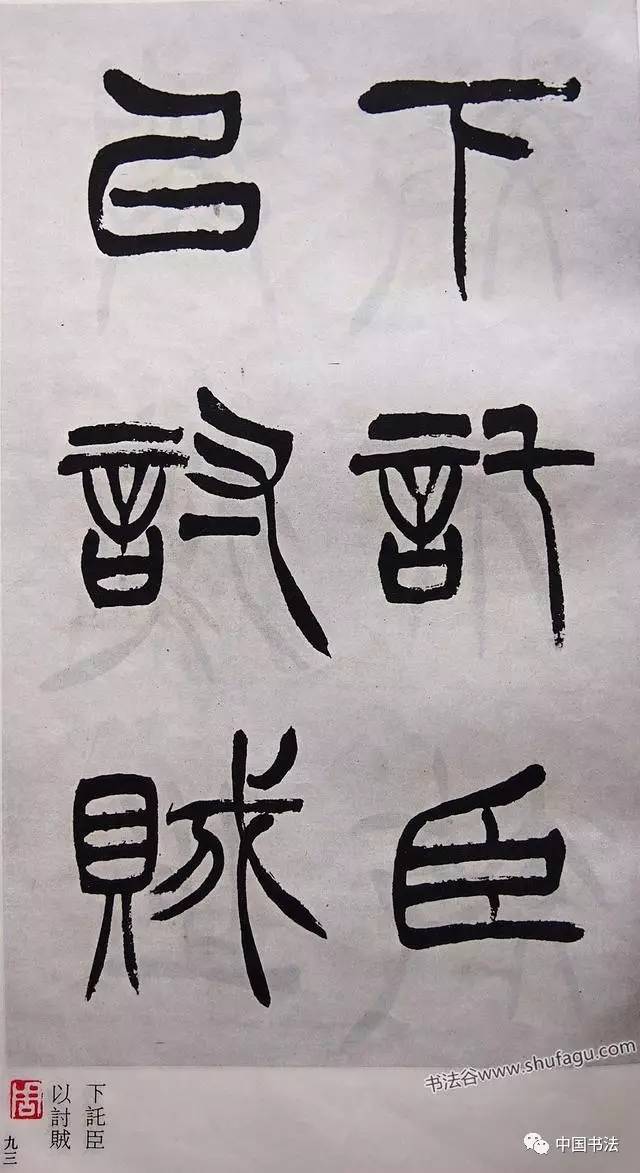 下託臣
以討賊
下託臣
以討賊
九三
书法谷www.shufagu.com
中国书法